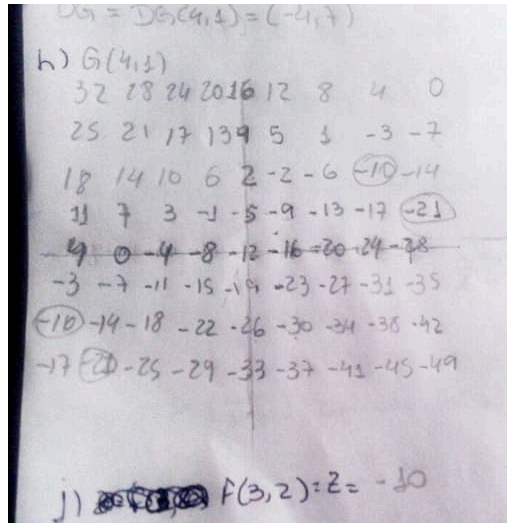 DG = DG(4,1) = (-4,7)
h) G(4,1)
32 28 24 20 16 12 8 4 0
25 21 17 13 9 5 1 -3 -7
18 14 10 6 2 -2 -6 -10 -14
11 7 3 -1 -5 -9 -13 -17 -21
4 0 -4 -8 -12 -16 -20 -24 -28
-3 -7 -11 -15 -19 -23 -27 -31 -35
-10 -14 -18 -22 -26 -30 -34 -38 -42
-17 -21 -25 -29 -33 -37 -41 -45 -49
j) F(3,2)=z= -10